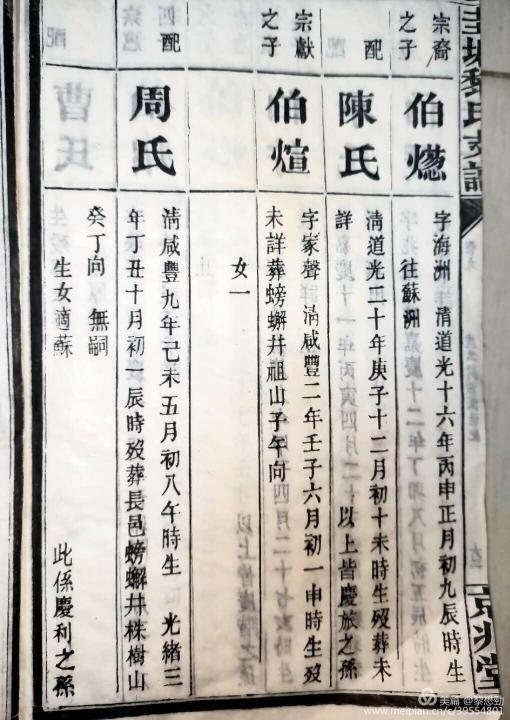 宗裔之子
伯㷼
字海洲 清道光十六年丙申正月初九辰時生
往蘇洲
配
陳氏
清道光二十年庚子十二月初十未時生歿葬未
詳 以上皆慶旅之孫
宗獻之子
伯煊
字家聲 清咸豐二年壬子六月初一申時生歿
未詳葬螃蠏井祖山子午向
女一
配
周氏
清咸豐九年己未五月初八午時生 光緒三
年丁丑十月初一辰時歿葬長邑螃蠏井株樹山
癸丁向 無嗣
生女適蘇
此係慶利之孫
京兆堂
美篇 @黎想勁
www.meipian.cn/c/39554801